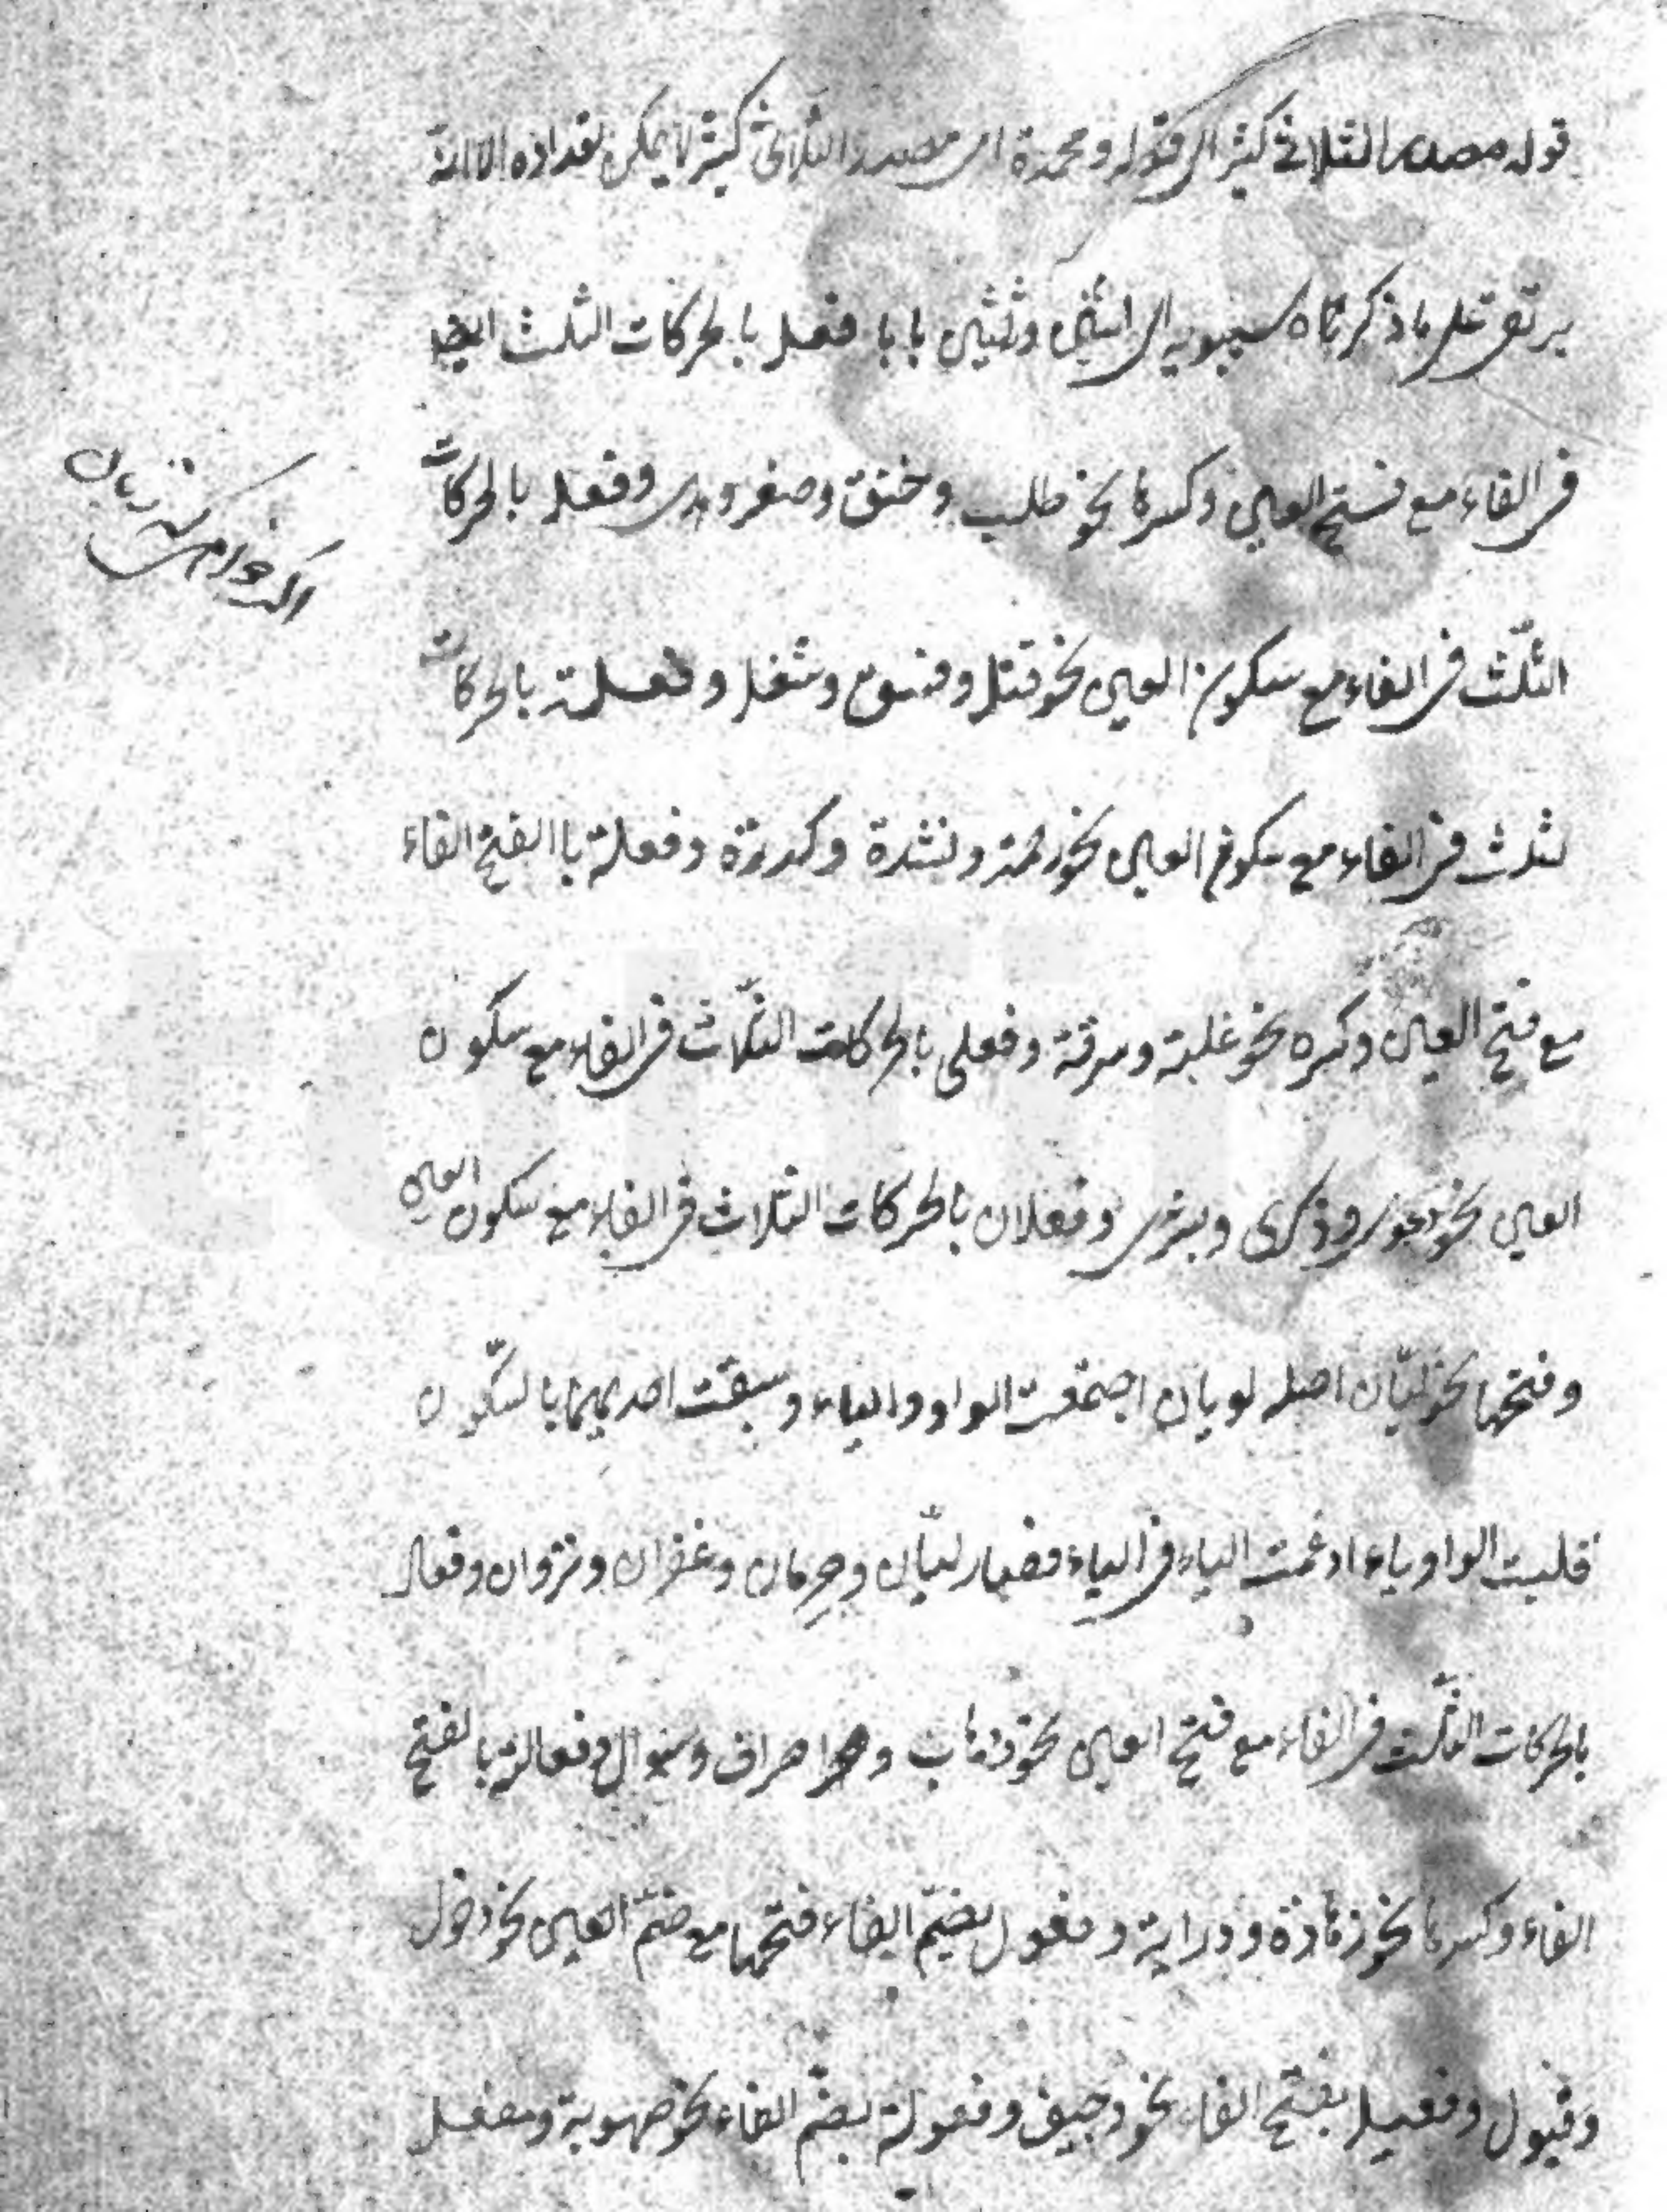 قوله مصدر الثلاثى كثير الى قوله ومحمدة اى مصدر الثلاثى كثير لا يمكن تعداده الا انه
يرتقى على ما ذكرناه سيبويه الى اثنين وثلثين بابا فعل بالحركات الثلث
فى الفاء مع فتح العين وكسرها نحو طلب وخنق وصغر وهدى وفعل بالحركات
الثلث فى الفاء مع سكون العين نحو قتل وفسق وشغل وفعلة بالحركات
لثلث فى الفاء مع سكون العين نحو رحمة ونشدة وكدرة وفعلة باالفتح الفاء
مع فتح العين وكسره نحو غلبة وسرقة وفعلى بالحركات الثلاث فى الفاء مع سكون
العين نحو دعوى وذكرى وبشرى وفعلان بالحركات الثلاث فى الفاء مع سكون العين
وفتحها نحو ليّان اصله لويان اجتمعت الواو والياء وسبقت احديهما بالسّكون
قلبت الواو ياء ادغمت الياء فى الياء فصار ليّان وحرمان وغفران ونزوان وفعال
بالحركات الثلث فى الفاء مع فتح العين نحو ذهاب و صراف وسؤال وفعالة بالفتح
الفاء وكسرها نحو زهادة ودراية وفعول بضمّ الفاء فتحها مع ضمّ العين نحو دخول
وقبول وفعيل بفتح الفاء نحو وجيف وفعولة بضمّ الفاء نحو صهوبة ومفعل